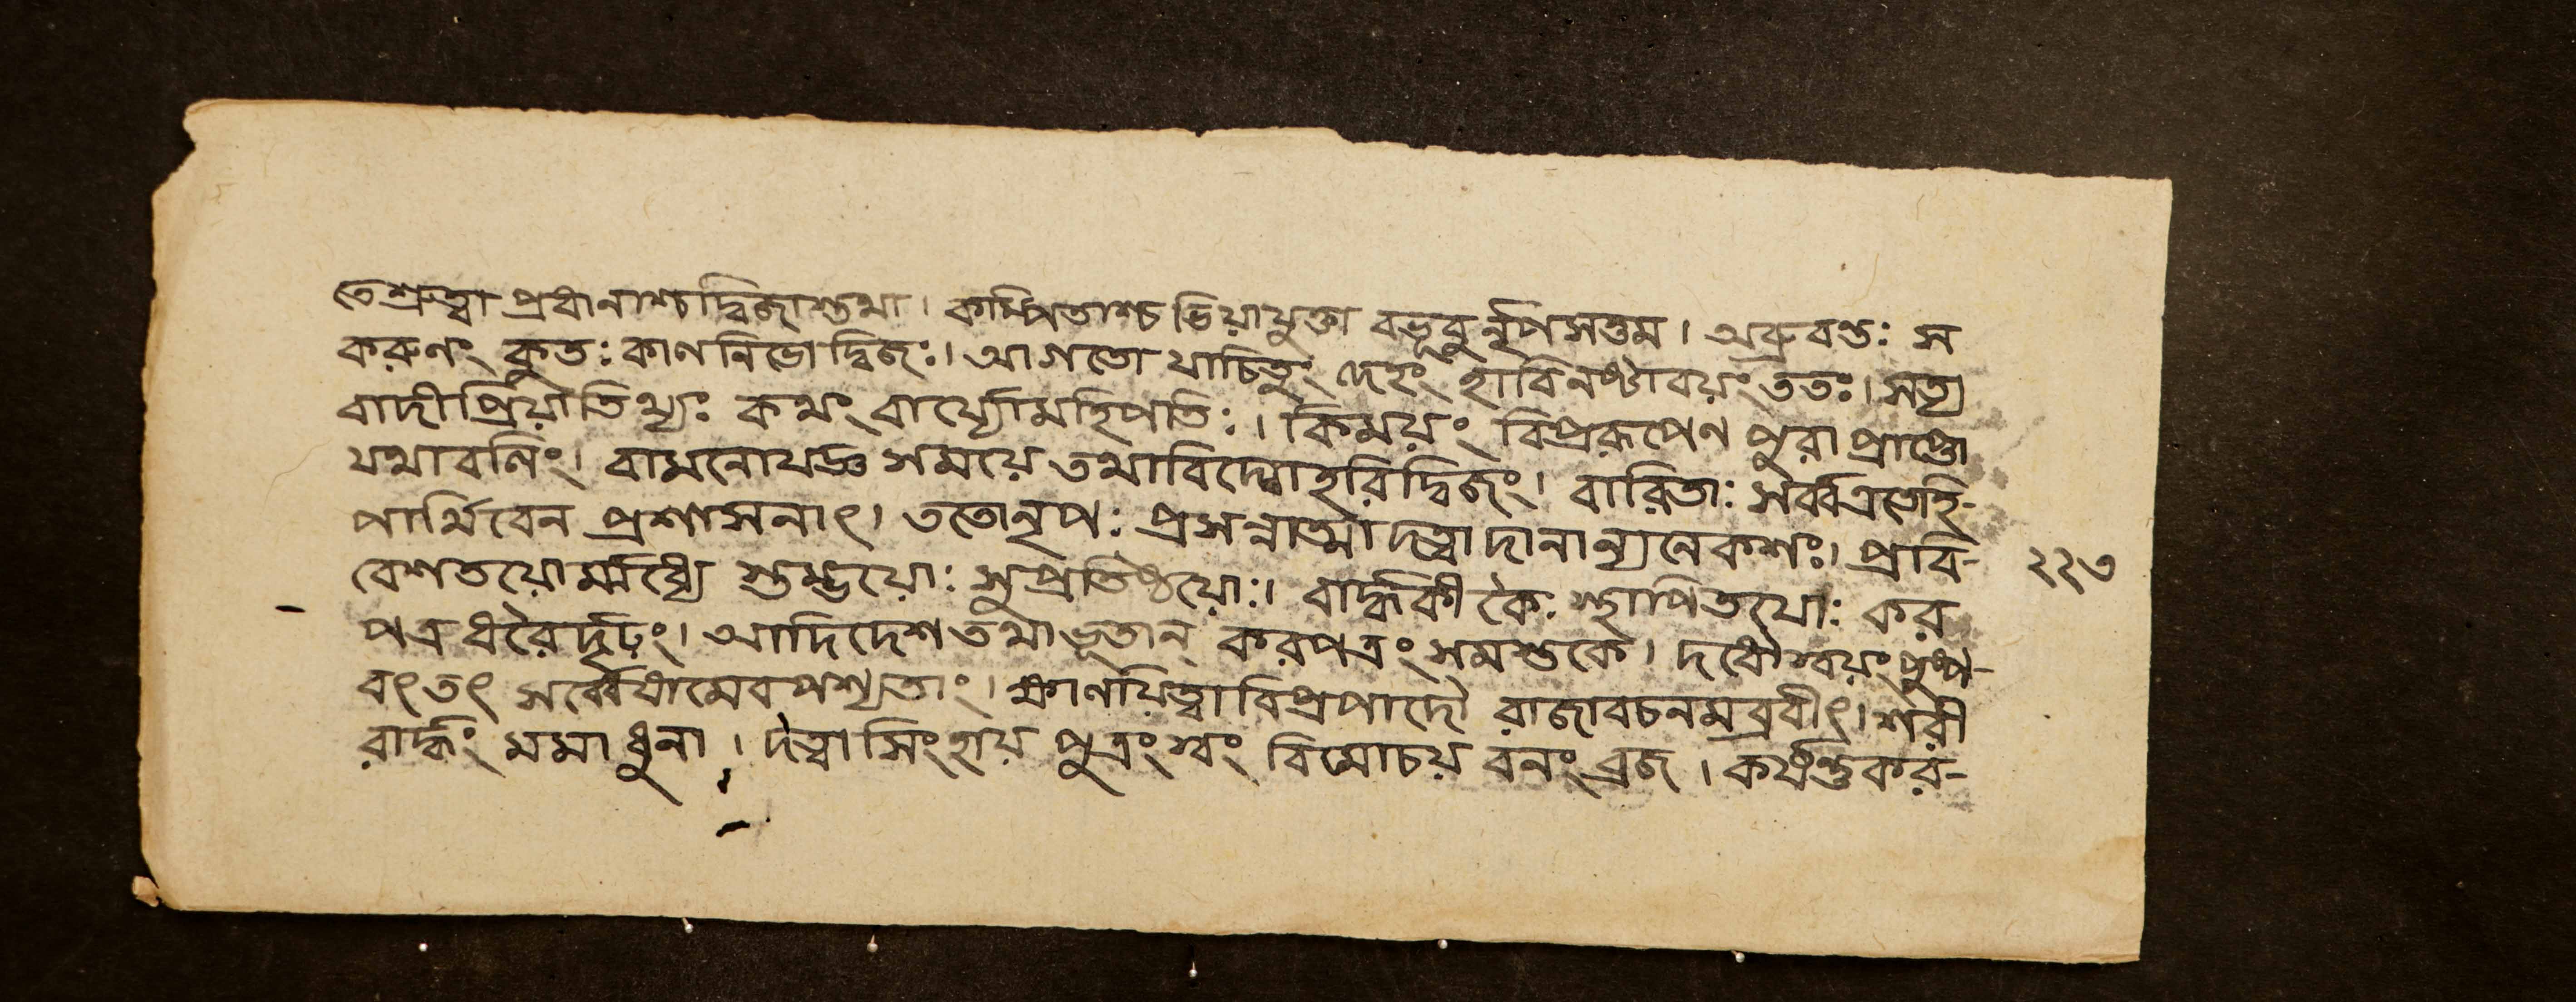 তে শ্রুত্বা প্রধানাশ্চ দ্বিজাস্তথা। কম্পিতাশ্চ ভিয়াযুক্তা বভূবুর্নৃপসত্তম। অব্রুবন্তঃ স
করুণং কুতঃ কাণনিভো দ্বিজঃ। আগতো যাচিতুং দেহং হা বিনষ্টা বয়ং ততঃ। সত্য
বাদী প্রিয়াতিথ্যঃ কথং বার্য্যো মহিপতিঃ। কিময়ং বিপ্ররূপেণ পুরা প্রাপ্তো
যথা বলিং। বামনো যজ্ঞসময়ে তথাবিদ্ধো হরির্দ্বিজং। বারিতাঃ সর্ব্ব এতেহি-
পার্থিবেন প্রশাসনাৎ। ততো নৃপঃ প্রসন্নাত্মা দত্বা দানান্যনেকশঃ। প্রবি-
বেশ তয়োর্ম্মধ্যে স্তম্ভয়োঃ সুপ্রতিষ্ঠয়োঃ। বার্দ্ধকীকৈঃ স্থাপিতয়োঃ কর
পত্রধরৈর্দৃঢ়ং। আদিদেশ তথাভূতান্ করপত্রং সমস্তকে। দধৌ স্বয়ং পুষ্প-
বৎ তৎ সর্ব্বেষামেব পশ্যতাং। ক্ষালয়িত্বা বিপ্রপাদৌ রাজা বচনমব্রবীৎ। শরী
রার্দ্ধং মমাধুনা। দত্বা সিংহায় পুত্রং স্বং বিমোচয় বনং ব্রজ। কর্ষন্তু কর-
২২৩